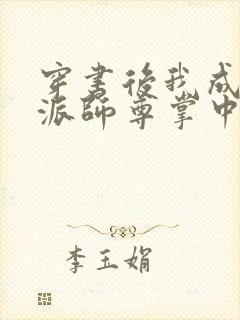 穿书後我成
派師尊掌中
李玉娟